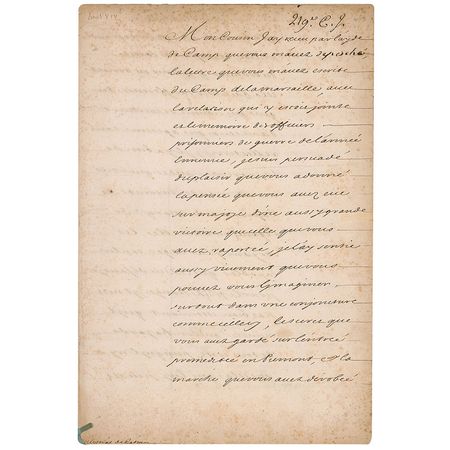 219. C. J.
Mon Cousin Jay receu par layde
de Camp que vous m'avez depesché
la lettre que vous m'avez escrite
du Camp de la marsaille, avec
la relation qui y estoit jointe
et le memoire des officiers
prisonniers de guerre de l'armée
Ennemie, je suis persuadé
du plaisir que vous a donné
la pensée que vous avez eüe
sur ma joye d'une aussy grande
victoire que celle que vous
avez raportée, je l'ay sentie
aussy vivement que vous
pouvez vous l'imaginer,
surtout dans une conjoncture
comme celle cy, le secret que
vous avez gardé sur l'entrée
premeditée en Piemont, et la
marche que vous avez dérobée